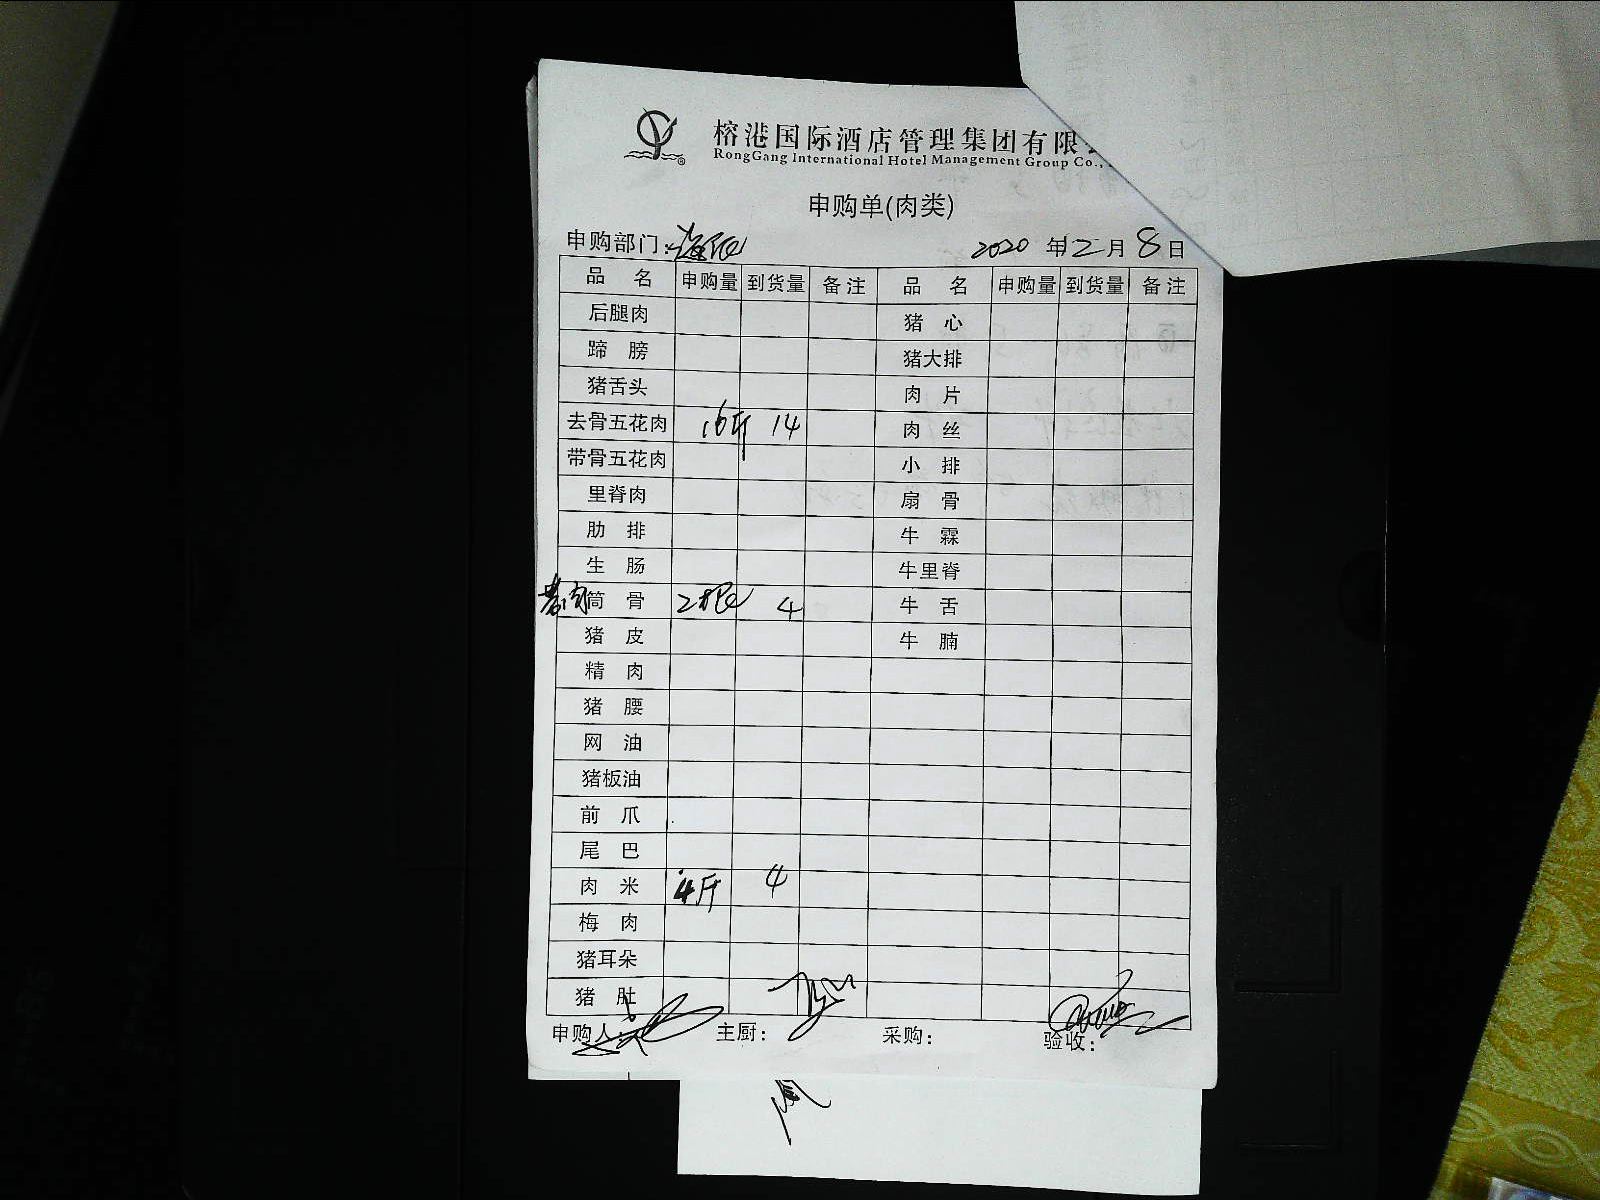 榕港国际酒店管理集团有限
RongGang International Hotel Management Group Co.,
申购单(肉类)
申购部门: 2020 年 2 月 8 日
品 名 申购量 到货量 备注 品 名 申购量 到货量 备注
后腿肉 猪 心
蹄 膀 猪大排
猪舌头 肉 片
去骨五花肉 16斤 14 肉 丝
带骨五花肉 小 排
里脊肉 扇 骨
肋 排 牛 霖
生 肠 牛里脊
筒 骨 2根 4 牛 舌
猪 皮 牛 腩
精 肉
猪 腰
网 油
猪板油
前 爪
尾 巴
肉 米 4斤 4
梅 肉
猪耳朵
猪 肚
申购人: 主厨: 采购: 验收: